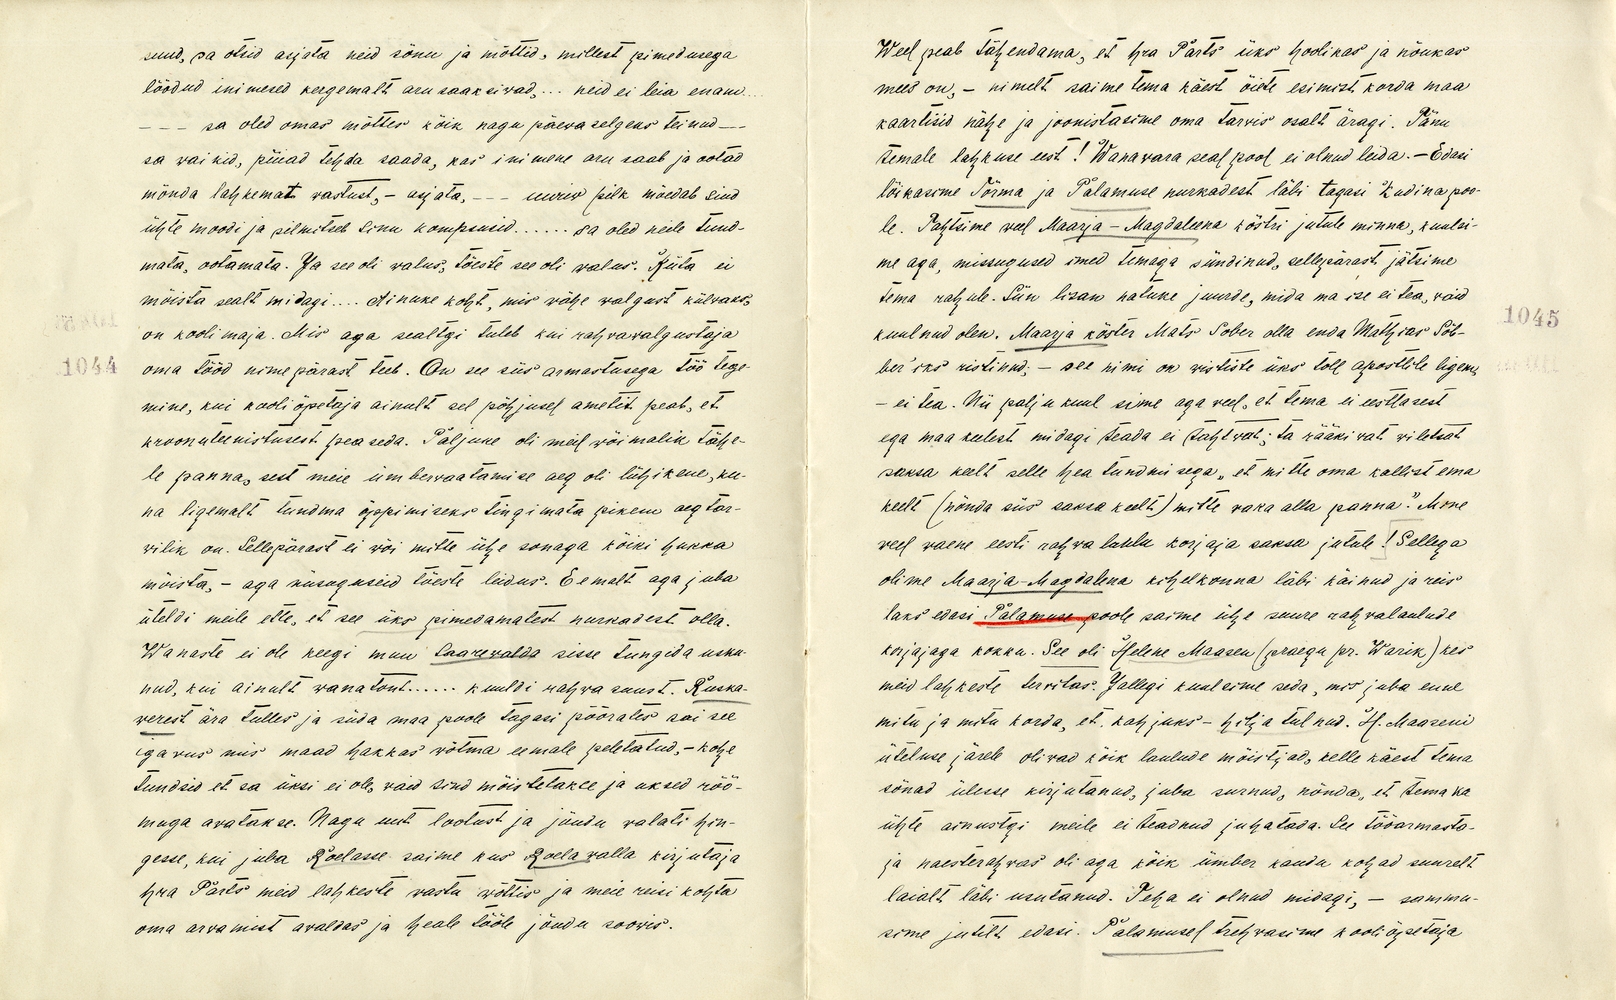 suud, sa otsid asjata neid sõnu ja mõttid, millest pimedusega
löödud inimesed kergemalt aru saaksivad,... neid ei leia enam...
--- sa oled omas mõttes kõik nagu päevaselgeks teinud ---
sa vaikid, püiad tehda saada, kas inimene aru saab ja ootad
mõnda lahkemat vastust, - asjata, --- uuriv pilk mõedab sind
ühte moodi ja silmitseb sinu kompsusid...... sa oled neile tund-
mata, ootamata. Ja see oli valus, tõeste see oli valus. Kiita ei
mõista sealt midagi.... Ainuke koht, mis vähe valgust külvaks,
on koolimaja. Mis aga sealtgi tuleb kui rahvavalgustaja
1044
oma tööd nimepärast teeb. On see siis armastusega töö tege-
mine, kui kooliõpetaja ainult sel põhjusel ametit peab, et
kroonuteenistusest peaseda. Paljune oli meil võimalik tähe-
le panna, sest meie ümbervaatamise aeg oli lühikene, ku-
na ligemalt tundma õppimiseks tingimata pikem aeg tar-
vilik on. Sellepärast ei või mitte ühe sonaga kõiki hukka
mõista, - aga niisuguseid tõeste leidus. Eemalt aga juba
üteldi meile ette, et see üks pimedamatest nurkadest olla.
Wanaste ei ole keegi muu Saarevalda sisse tungida usku-
nud, kui ainult vanatont...... kuuldi rahva suust. Ruska-
verest ära tulles ja süda maa poole tagasi pöörates sai see
igavus mis maad hakkas võtma eemale peletatud, - kohe
tundsid et sa üksi ei ole, vaid sind mõistetakse ja uksed rõõ-
muga avatakse. Nagu uut lootust ja jõudu valati hin-
gesse, kui juba Roelasse saime kus Roela valla kirjutaja
hra Pärts meid lahkeste vastu võttis ja meie reisi kohta
oma arvamist avaldas ja heale tööle jõudu soovis.
Weel peab tähendama, et hra Pärts üks hoolikas ja nõukas
mees on, - nimelt saime tema käest õiete esimist korda maa
kaartisid näha ja joonistasime oma tarvis osalt äragi. Tänu
temale lahkuse eest! Wanavara seal pool ei olnud leida. - Edasi
lõikasime Torma ja Palamuse nurkadest läbi tagasi Kudina poo-
le. Tahtsime veel Maarja-Magdaleena köstri jutule minna, kuulsi-
me aga, missugused imed temaga sündinud, sellepärast jätsime
tema rahule. Siin lisan natuke juurde, mida ma ise ei tea, vaid
1045
kuulnud olen. Maarja köster Mats Sober olla enda Mathias Söb-
ber'iks ristinud; - see nimi on vististe üks toll apostlile ligem,
- ei tea. Nii palju kuulsime aga veel, et tema ei eestlasest
ega maa keelest midagi teada ei tahtvat; ta rääkivat viletsat
saksa keelt selle hea tundmisega, "et mitte oma kallist ema
keelt (nõnda siis saksa keelt) mitte vaka alla panna". Mine
veel vaene eesti rahva luulu korjaja saksa jutule! Sellega
olime Maarja-Magdalena kihelkonna läbi käinud ja reis
läks edasi Palamuse poole saime ühe suure rahvalaulude
korjajaga kokku. See oli Helene Maasen (praegu pr. Warik) kes
meid lahkeste tervitas. Jallegi kuulsime seda, mis juba enne
mitu ja mitu korda, et kahjuks - hilja tulnud. H. Maaseni
üteluse järele olivad kõik laulude mõistjad, kelle käest tema
sõnad ülesse kirjutanud, juba surnud, nõnda, et tema ka
ühte ainustgi meile ei teadnud juhatada. See tööarmasta-
ja naesterahvas oli aga kõik ümber kaudu kohad suurelt
laialt läbi usutanud. Teha ei olnud midagi, - sammu-
sime jutilt edasi. Palamusel trehvasime kooliõpetaja